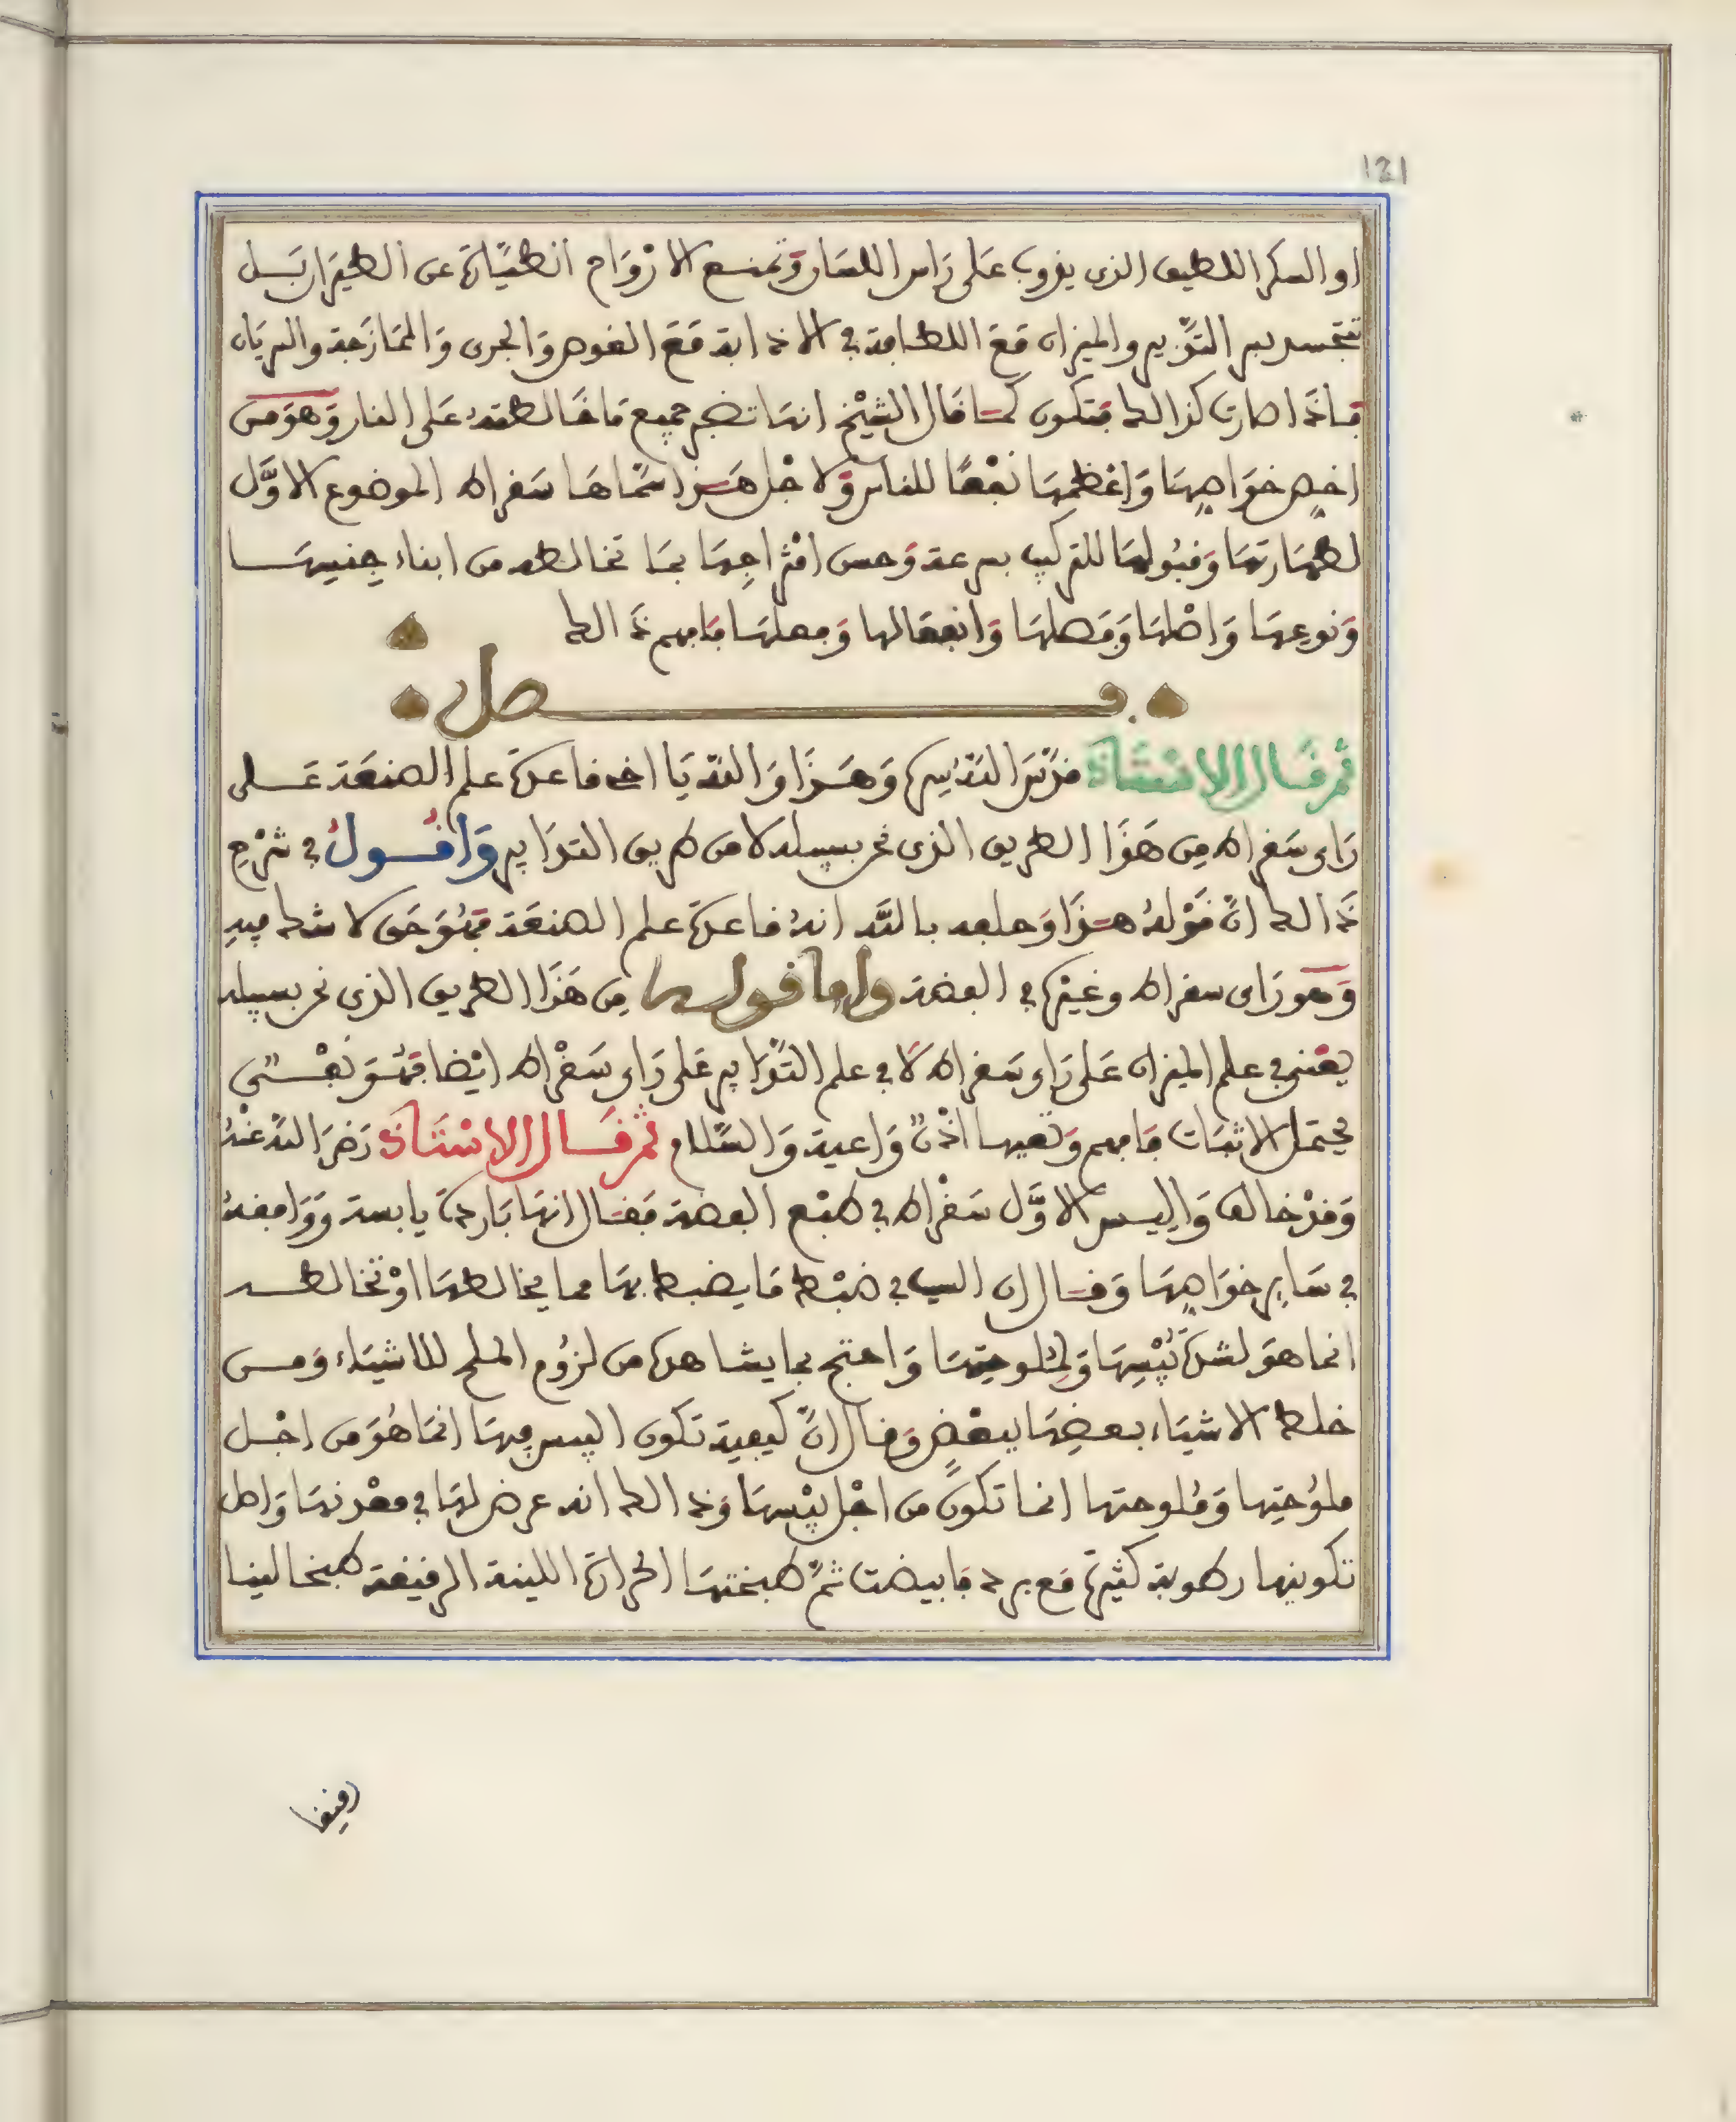 121
او السكر اللطيف الذى يذوب على راس اللسان وتمنع الارواح الطيارة عن الطيران بل
تتجسد بسر التدبير والميزان مع اللطافة في الاذابة مع الغوص والجرى والممازجة والسريان
فاذا صارت كذالك فتكون كما قال الشيخ انها تضبط جميع ما خالطته على النار وهو من
اخص خواصها واعظمها نفعا للناس ولاجل هذا سماها سقراط الموضوع الاول
لطهارتها وقبولها للتركيب بسرعة وحسن امتزاجها بما تخالطه من ابناء جنسها
ونوعها واصلها وفصلها وانفعالها وفعلها فافهم ذالك
فصل
ثم قال الاستاذ قدس الله سره وهذا والله يا اخى قاعدة علم الصنعة على
راى سقراط من هذا الطريق الذى نحن بسبيله لا من طريق التدابير واقول في شرح
ذالك ان قوله هذا وحلفه بالله انه قاعدة علم الصنعة فهو حق لا شك فيه
وهو راى سقراط وغيره في الفضة واما قوله من هذا الطريق الذى نحن بسبيله
يعنى في علم الميزان على راى سقراط لا في علم التدابير على راى سقراط ايضا فهو نفى
يحتمل الاثبات فافهم وتعيها اذن واعية والسلام ثم قال الاستاذ رضى الله عنه
وقد خالف واليس الاول سقراط في طبع الفضة فقال انها باردة يابسة ووافقه
في ساير خواصها وقال ان السبب في ضبط ما يضبط بها مما يخالطها او تخالطه
انما هو لشدة يبسها ولملوحتها واحتج بما يشاهد من لزوم الملح للاشياء ومن
خلط الاشياء بعضها ببعض وقال ان كيفية تكون اليبس فيها انما هو من اجل
ملوحتها وملوحتها انما تكون من اجل يبسها وذالك انه عرض لها في معدنها واصل
تكوينها رطوبة كثيرة مع برد فابيضت ثم طبختها الحرارة اللينة الرفيقة طبخا لينا
رفيقا